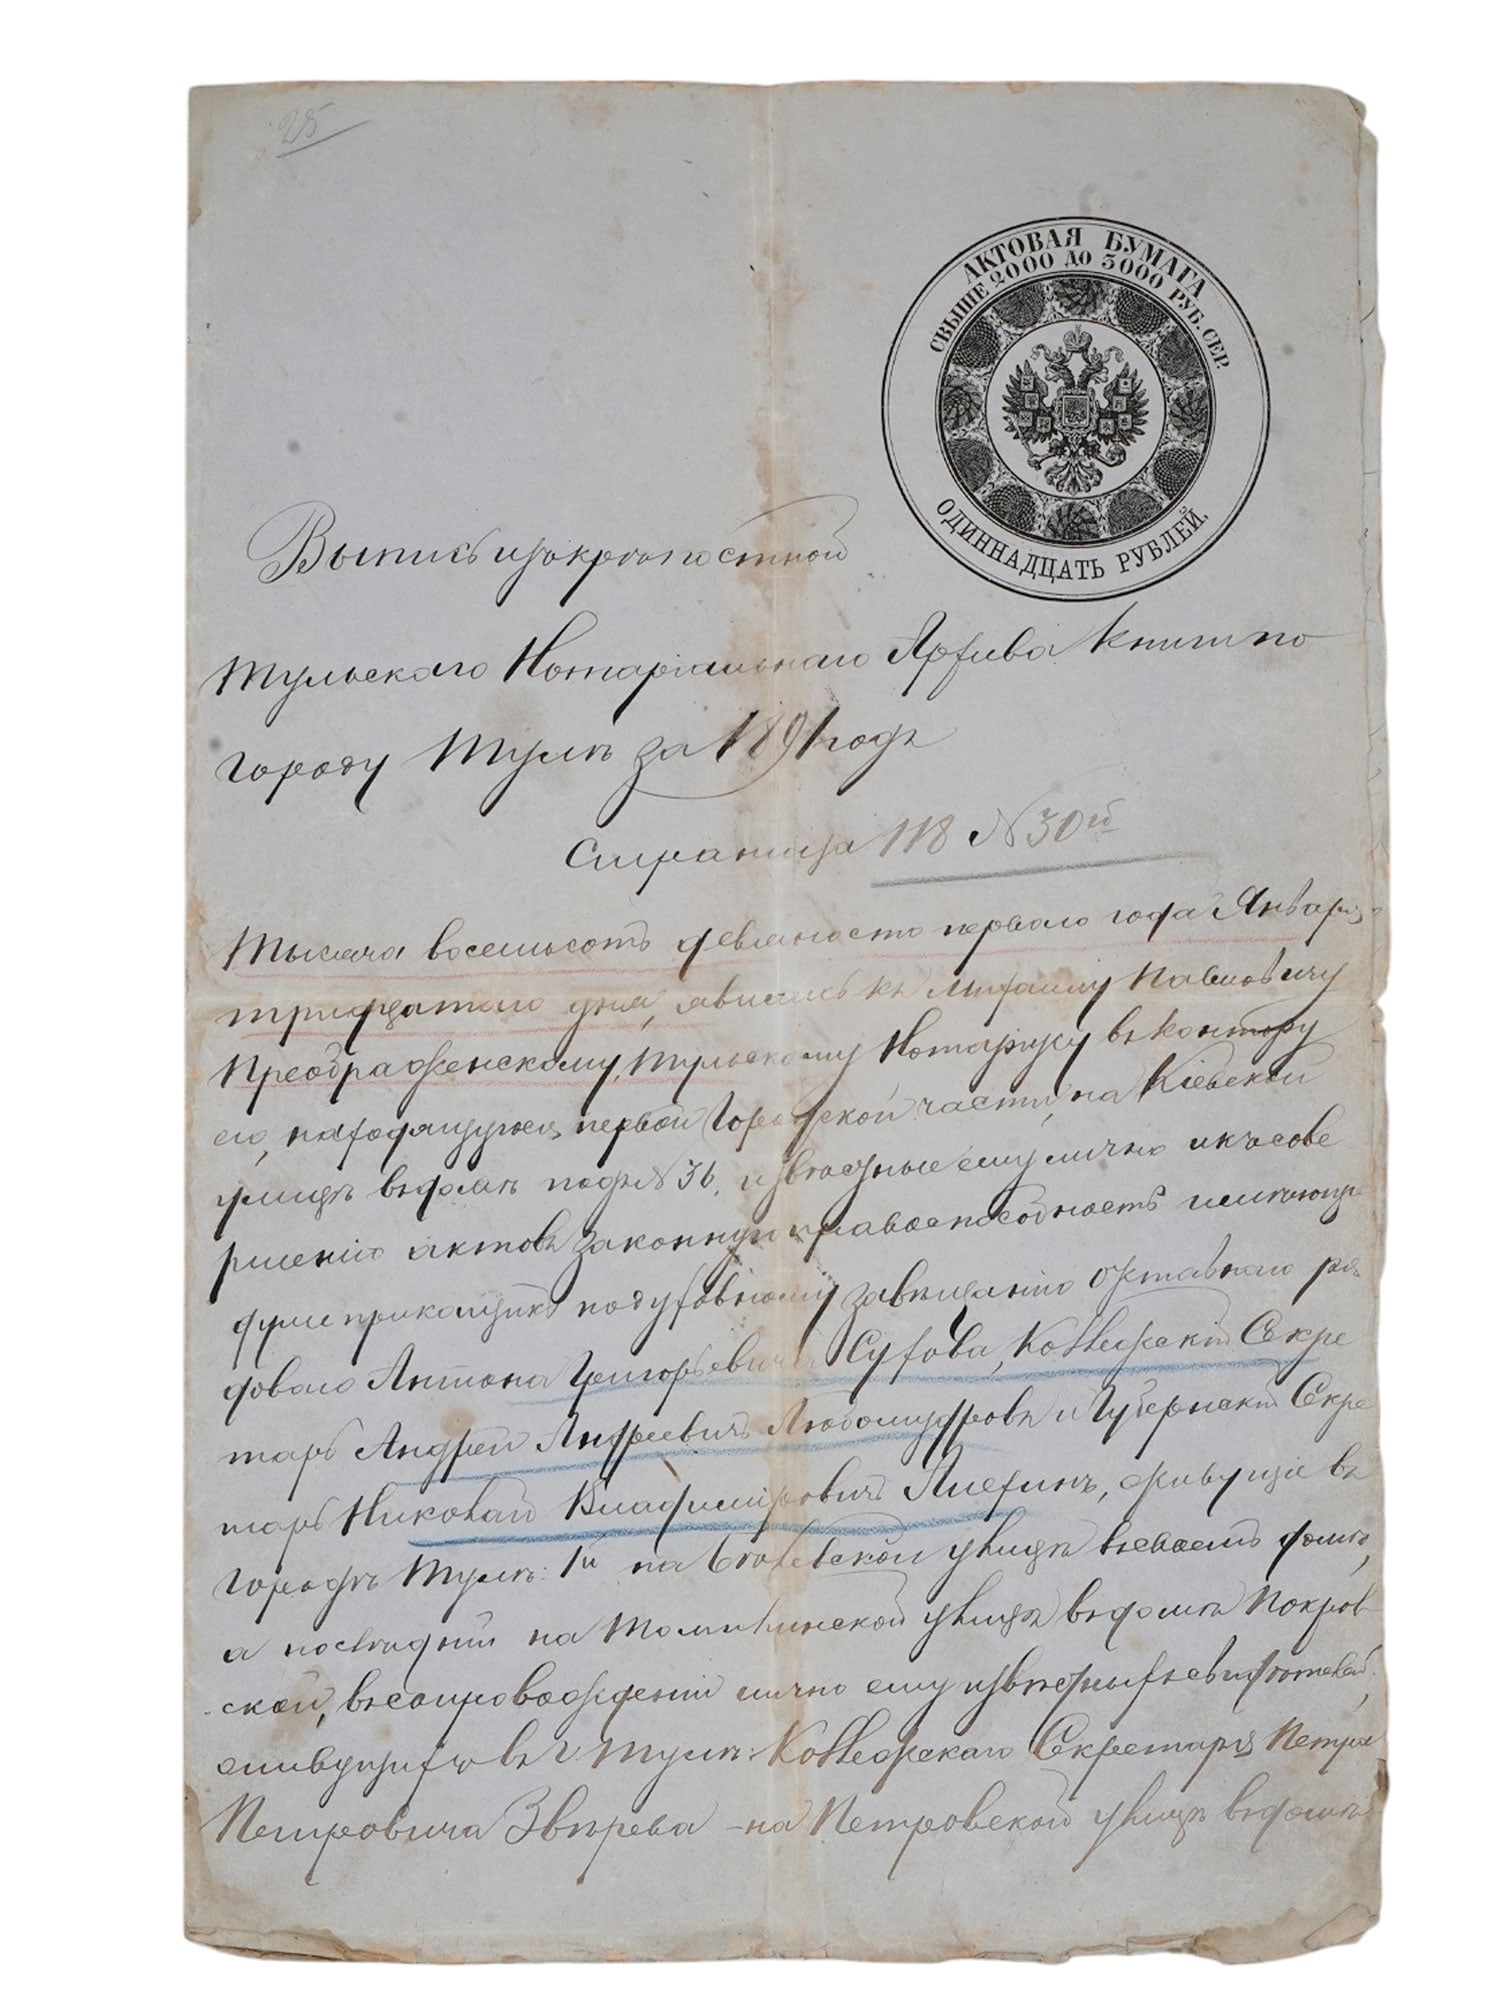 25
АКТОВАЯ БУМАГА
СВЫШЕ 2000 ДО 3000 РУБ. СЕР.
ОДИННАДЦАТЬ РУБЛЕЙ.
Выпись изъ крѣпостной
Тульскаго Нотаріальнаго Архива книги по
городу Тулѣ за 1891 годъ
Страница 118 № 30й
Тысяча восемьсотъ девяносто перваго года Января
тридцатаго дня, явились къ Михаилу Павловичу
Преображенскому, Тульскому Нотаріусу въ контору
его, находящуюся первой Городской части, на Кіевской
улицѣ въ домѣ подъ № 36, извѣстные ему лично и къ сове
ршенію актовъ законную правоспособность имѣющіе
душеприкащики по духовному завѣщанію отставного ря
дового Антона Григорьевича Сухова, Коллежскій Секре
тарь Андрей Андреевичъ Любомудровъ и Губернскій Секре
тарь Николай Владиміровичъ Алехинъ, живущіе въ
городѣ Тулѣ: 1й на улицѣ въ своемъ домѣ,
а послѣдній на улицѣ въ домѣ Покров
ской, въ сопровожденіи лично ему извѣстныхъ свидѣтелей,
живущихъ въ г. Тулѣ: Коллежскаго Секретаря Петра
Петровича Звѣрева - на Петровской улицѣ въ домѣ